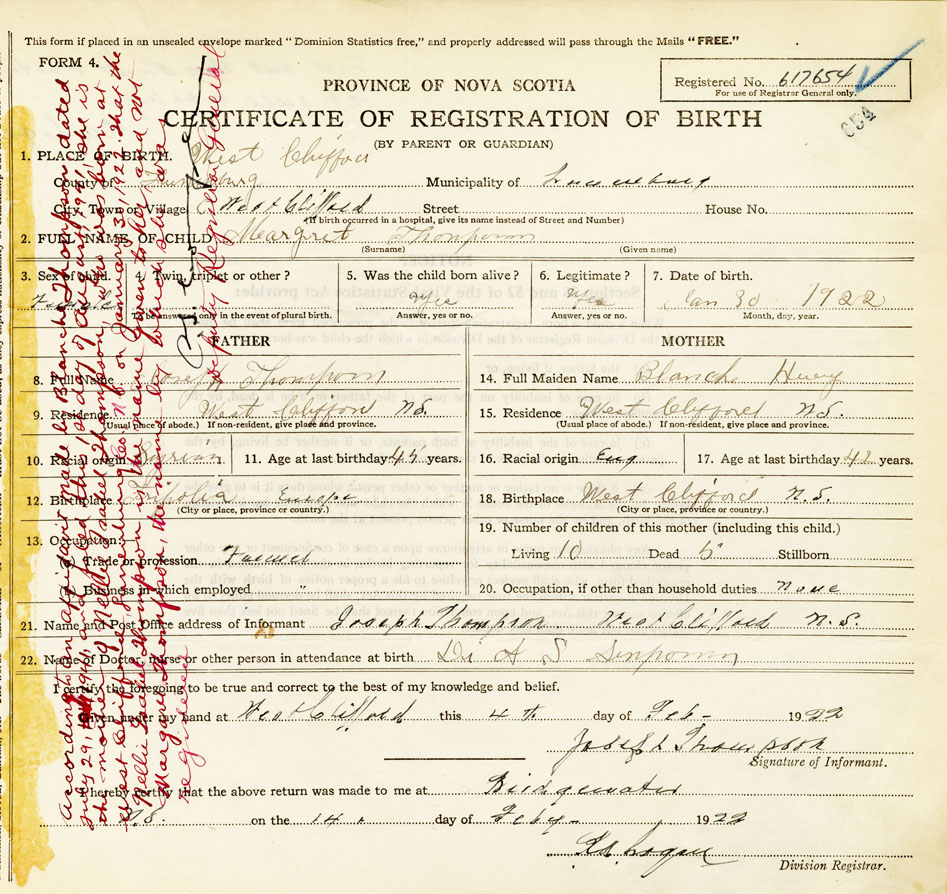 This form if placed in an unsealed envelope marked "Dominion Statistics free," and properly addressed will pass through the Mails "FREE."
FORM 4.
Registered No. 617654
For use of Registrar General only.
654
PROVINCE OF NOVA SCOTIA
CERTIFICATE OF REGISTRATION OF BIRTH
(BY PARENT OR GUARDIAN)
1. PLACE OF BIRTH. West Clifford
County of Lunenburg Municipality of Lunenburg
City, Town or Village West Clifford Street House No.
(If birth occurred in a hospital, give its name instead of Street and Number)
2. FULL NAME OF CHILD Margret Thompson
(Surname) (Given name)
3. Sex of child. 4. Twin, triplet or other? 5. Was the child born alive? 6. Legitimate? 7. Date of birth.
Female Yes Yes Jan 30 1922
To be answered only in the event of plural birth. Answer, yes or no. Answer, yes or no. Month, day, year.
FATHER MOTHER
8. Full Name Joseph Thompson 14. Full Maiden Name Blanch
9. Residence West Clifford N.S. 15. Residence West Clifford N.S.
(Usual place of abode.) If non-resident, give place and province. (Usual place of abode.) If non-resident, give place and province.
10. Racial origin 11. Age at last birthday years. 16. Racial origin Eng 17. Age at last birthday 42 years.
12. Birthplace Tripolia Europe 18. Birthplace West Clifford N.S.
(City or place, province or country.) (City or place, province or country.)
13. Occupation:— 19. Number of children of this mother (including this child.)
Trade or profession Farmer Living 10 Dead 5 Stillborn
Business in which employed " 20. Occupation, if other than household duties None
21. Name and Post Office address of Informant Joseph Thompson West Clifford N.S.
22. Name of Doctor, nurse or other person in attendance at birth Dr A S
I certify the foregoing to be true and correct to the best of my knowledge and belief.
Given under my hand at West Clifford this 4th day of Feb- 1922
Joseph Thompson
Signature of Informant.
I hereby certify that the above return was made to me at Bridgewater
N.S. on the 14 day of Feby- 1922
Division Registrar.
According to an affidavit made by Blanche Thompson dated
July 29, 1941, and dated this, day of August 1941, she is
the mother of Nellie Isabel Thompson, who was born at
West Clifford, Lunenburg Co. N.S. on January 31, 1922. that the
Nellie Isabel Thompson is the name given to her, and not
Margaret Thompson, the name by which she was
registered
Deputy Registrar General